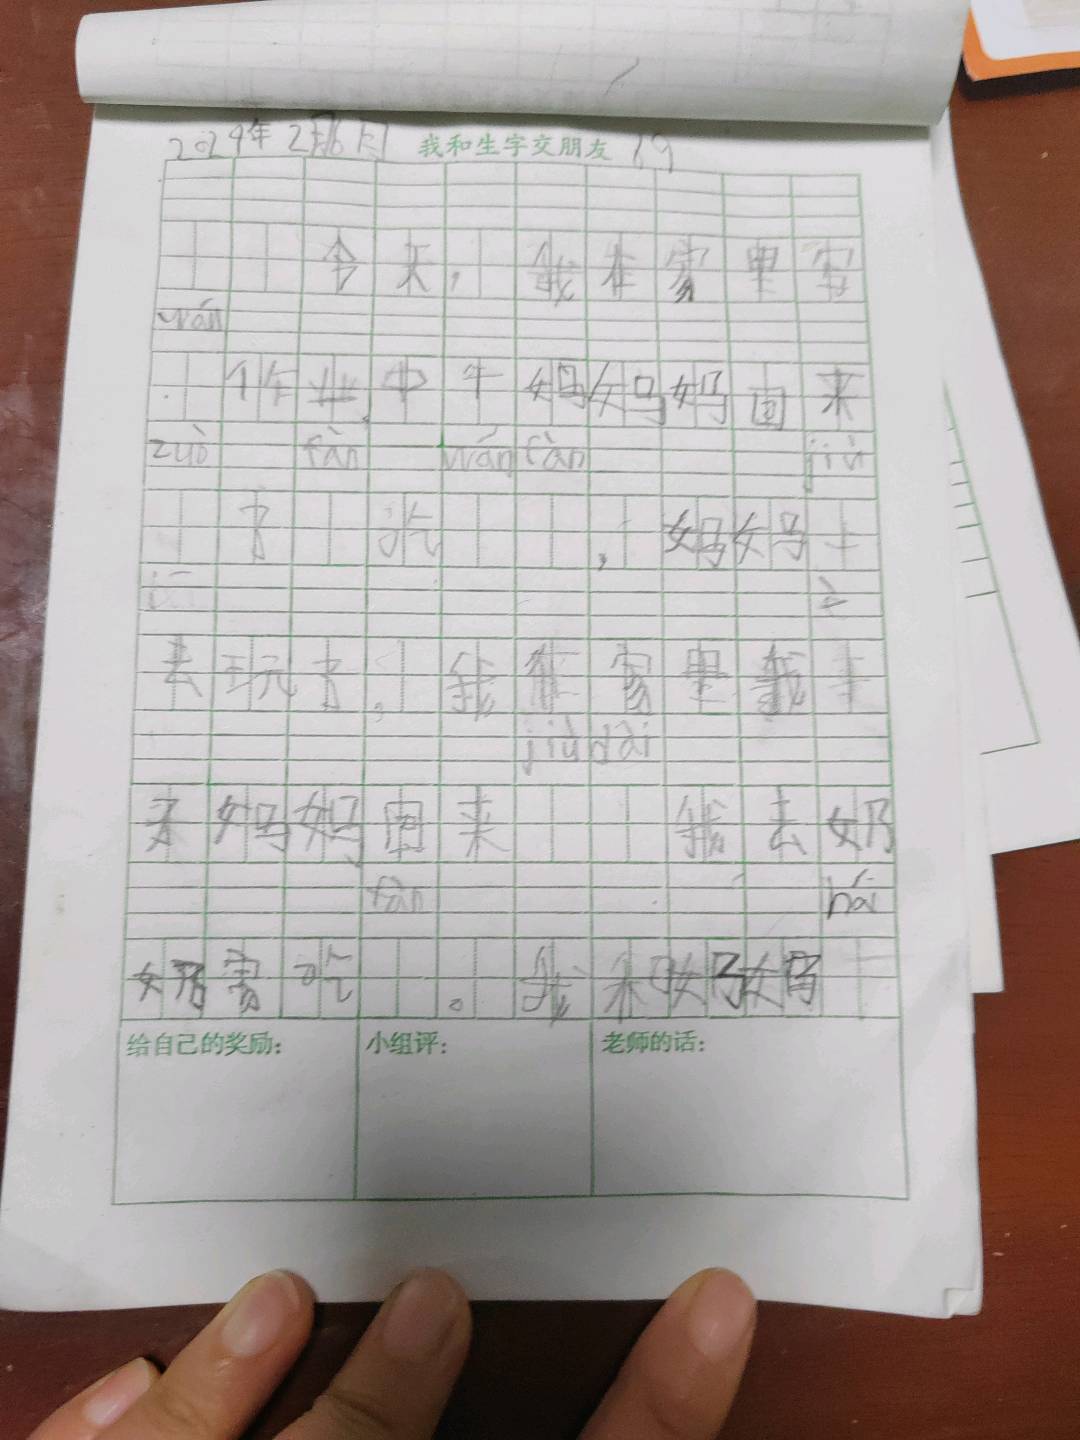 2024年2月 我和生字交朋友 19
今天,我在家里写
wán
作业,中午妈妈妈回来
zuò fàn wán fàn jiù
了 吃 ,妈妈
去玩了,我在家里我
jiù dài
来妈妈回来 我去奶
fàn hái
奶家吃 。我和妈妈
给自己的奖励: 小组评: 老师的话: